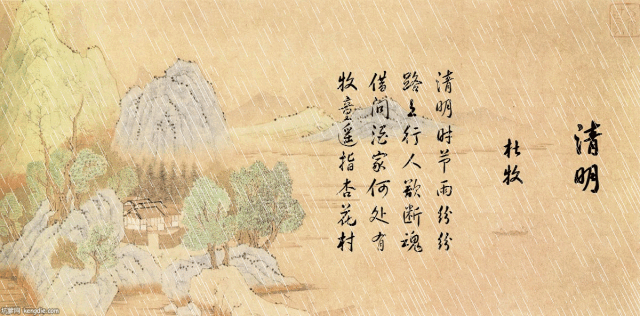 清明
杜牧
清明时节雨纷纷
路上行人欲断魂
借问酒家何处有
牧童遥指杏花村
坑爹网 kengdie.com